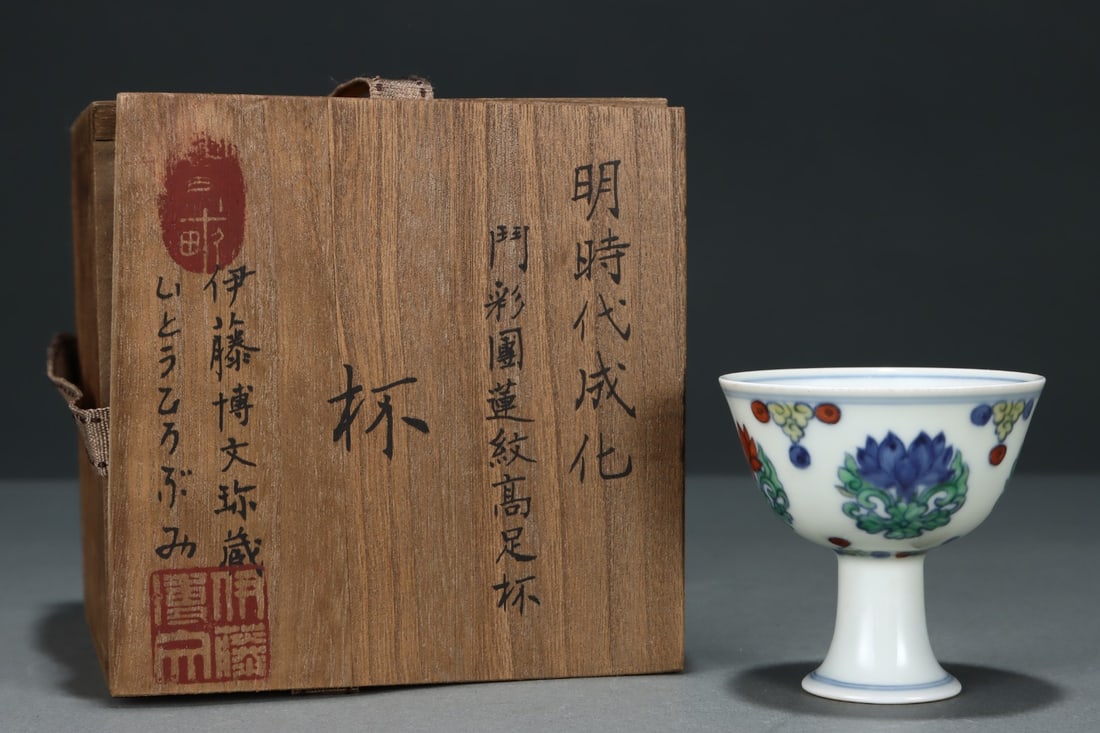 明時代成化
鬥彩團蓮紋高足杯
杯
伊藤博文珎蔵
いとうひろぶみ
伊藤
博文